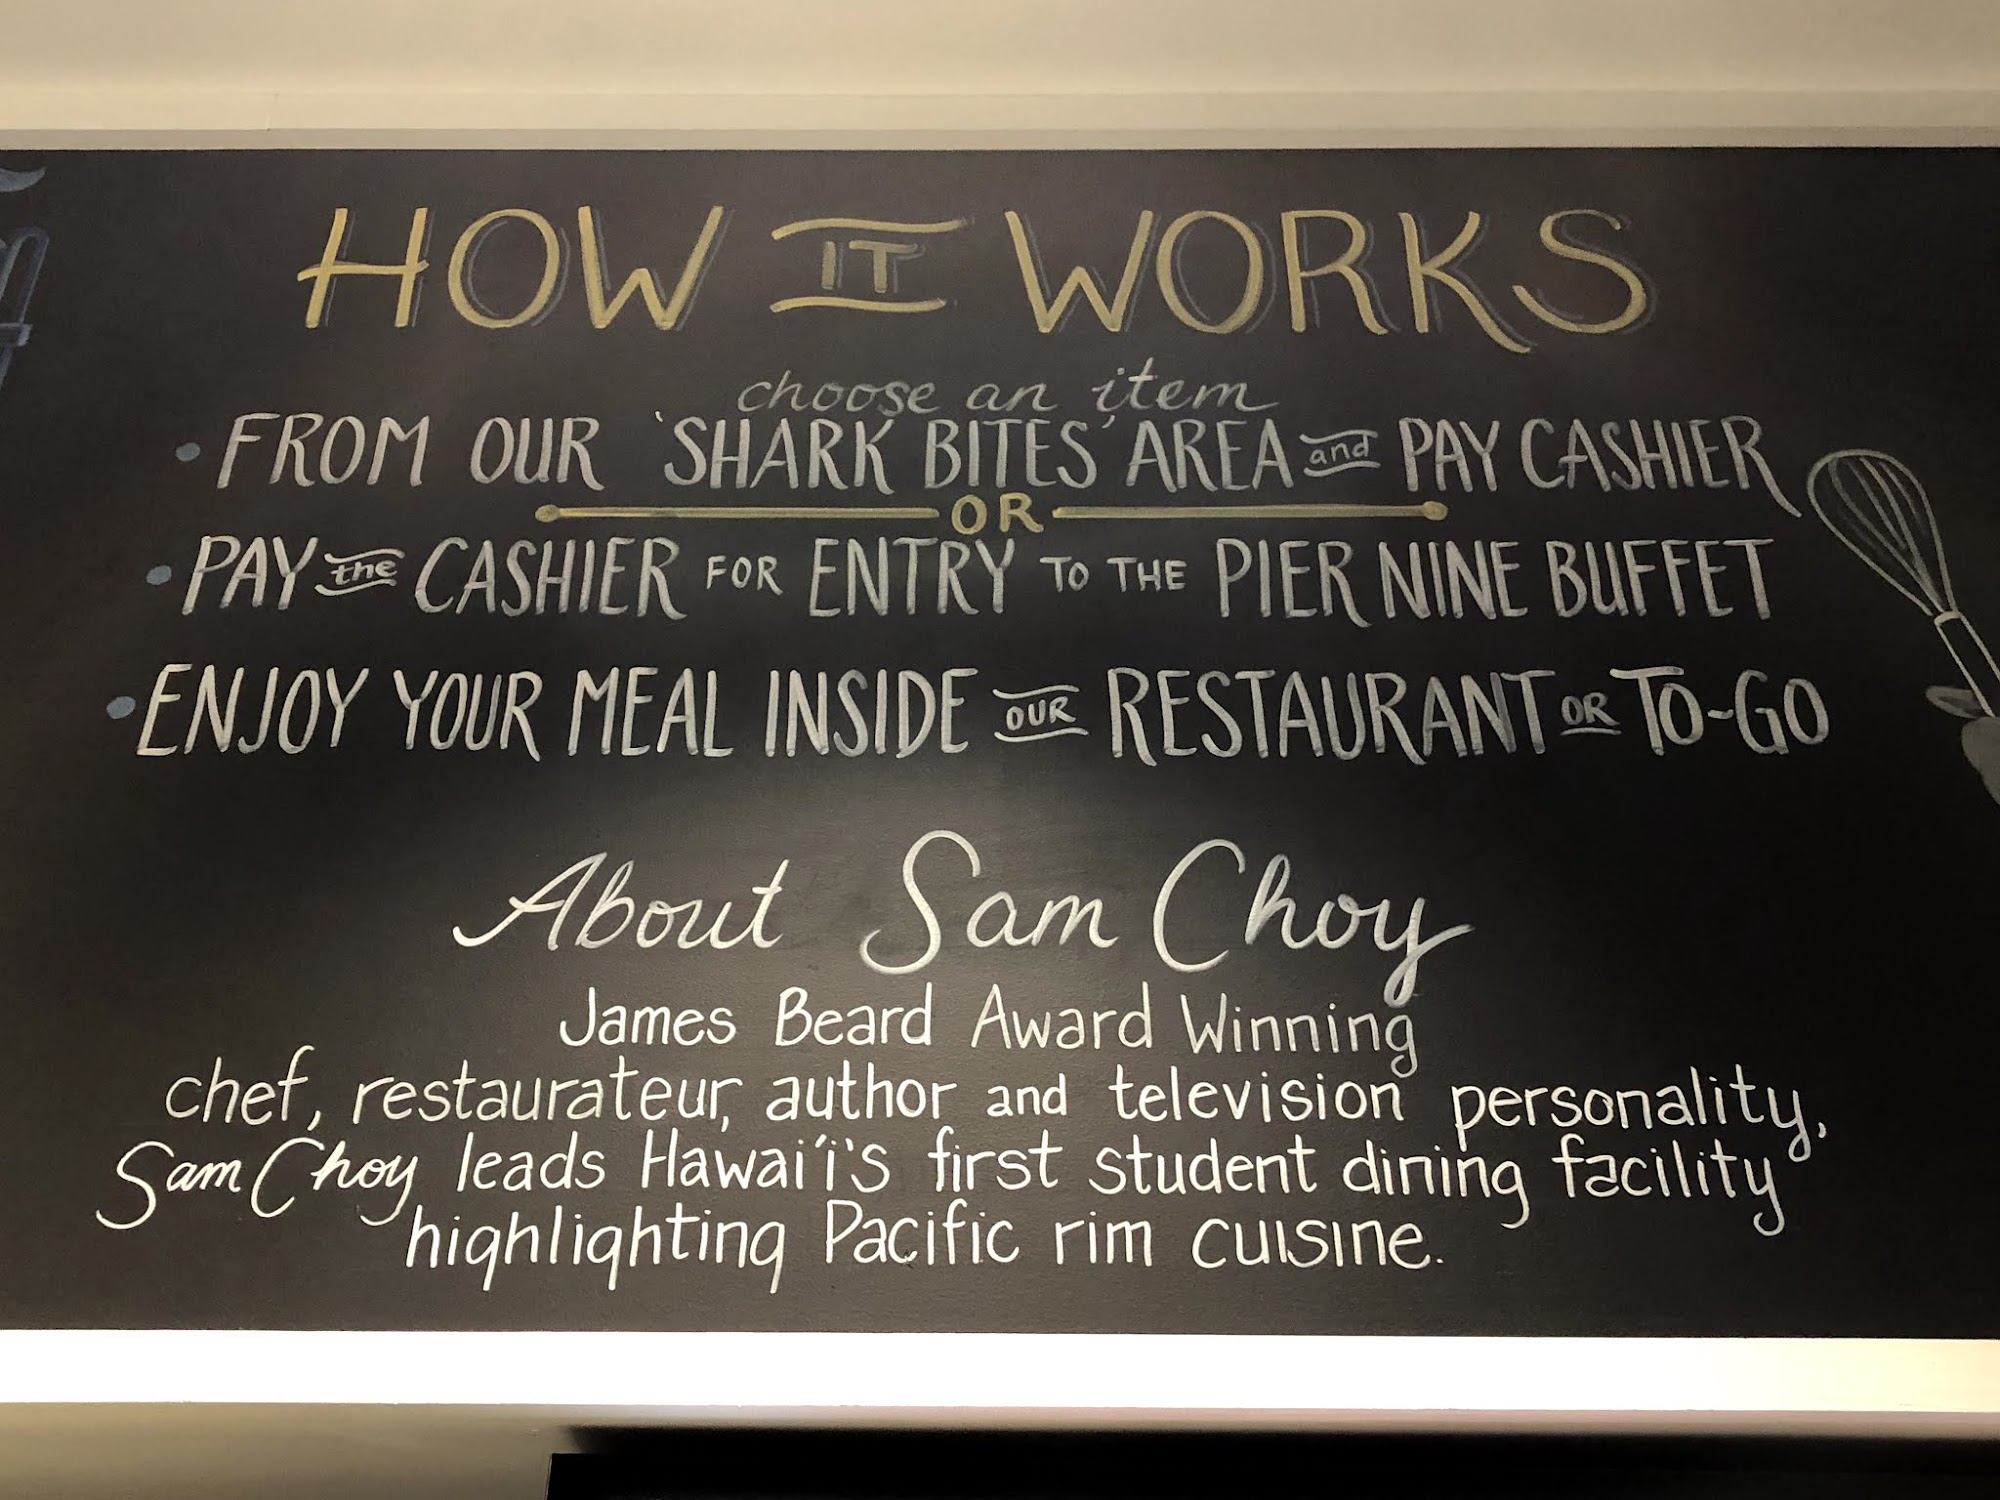 HOW IT WORKS
choose an item
• FROM OUR 'SHARK BITES' AREA and PAY CASHIER
OR
• PAY the CASHIER FOR ENTRY TO THE PIER NINE BUFFET
• ENJOY YOUR MEAL INSIDE OUR RESTAURANT OR TO-GO
About Sam Choy
James Beard Award Winning
chef, restaurateur, author and television personality,
Sam Choy leads Hawai'i's first student dining facility
highlighting Pacific rim cuisine.